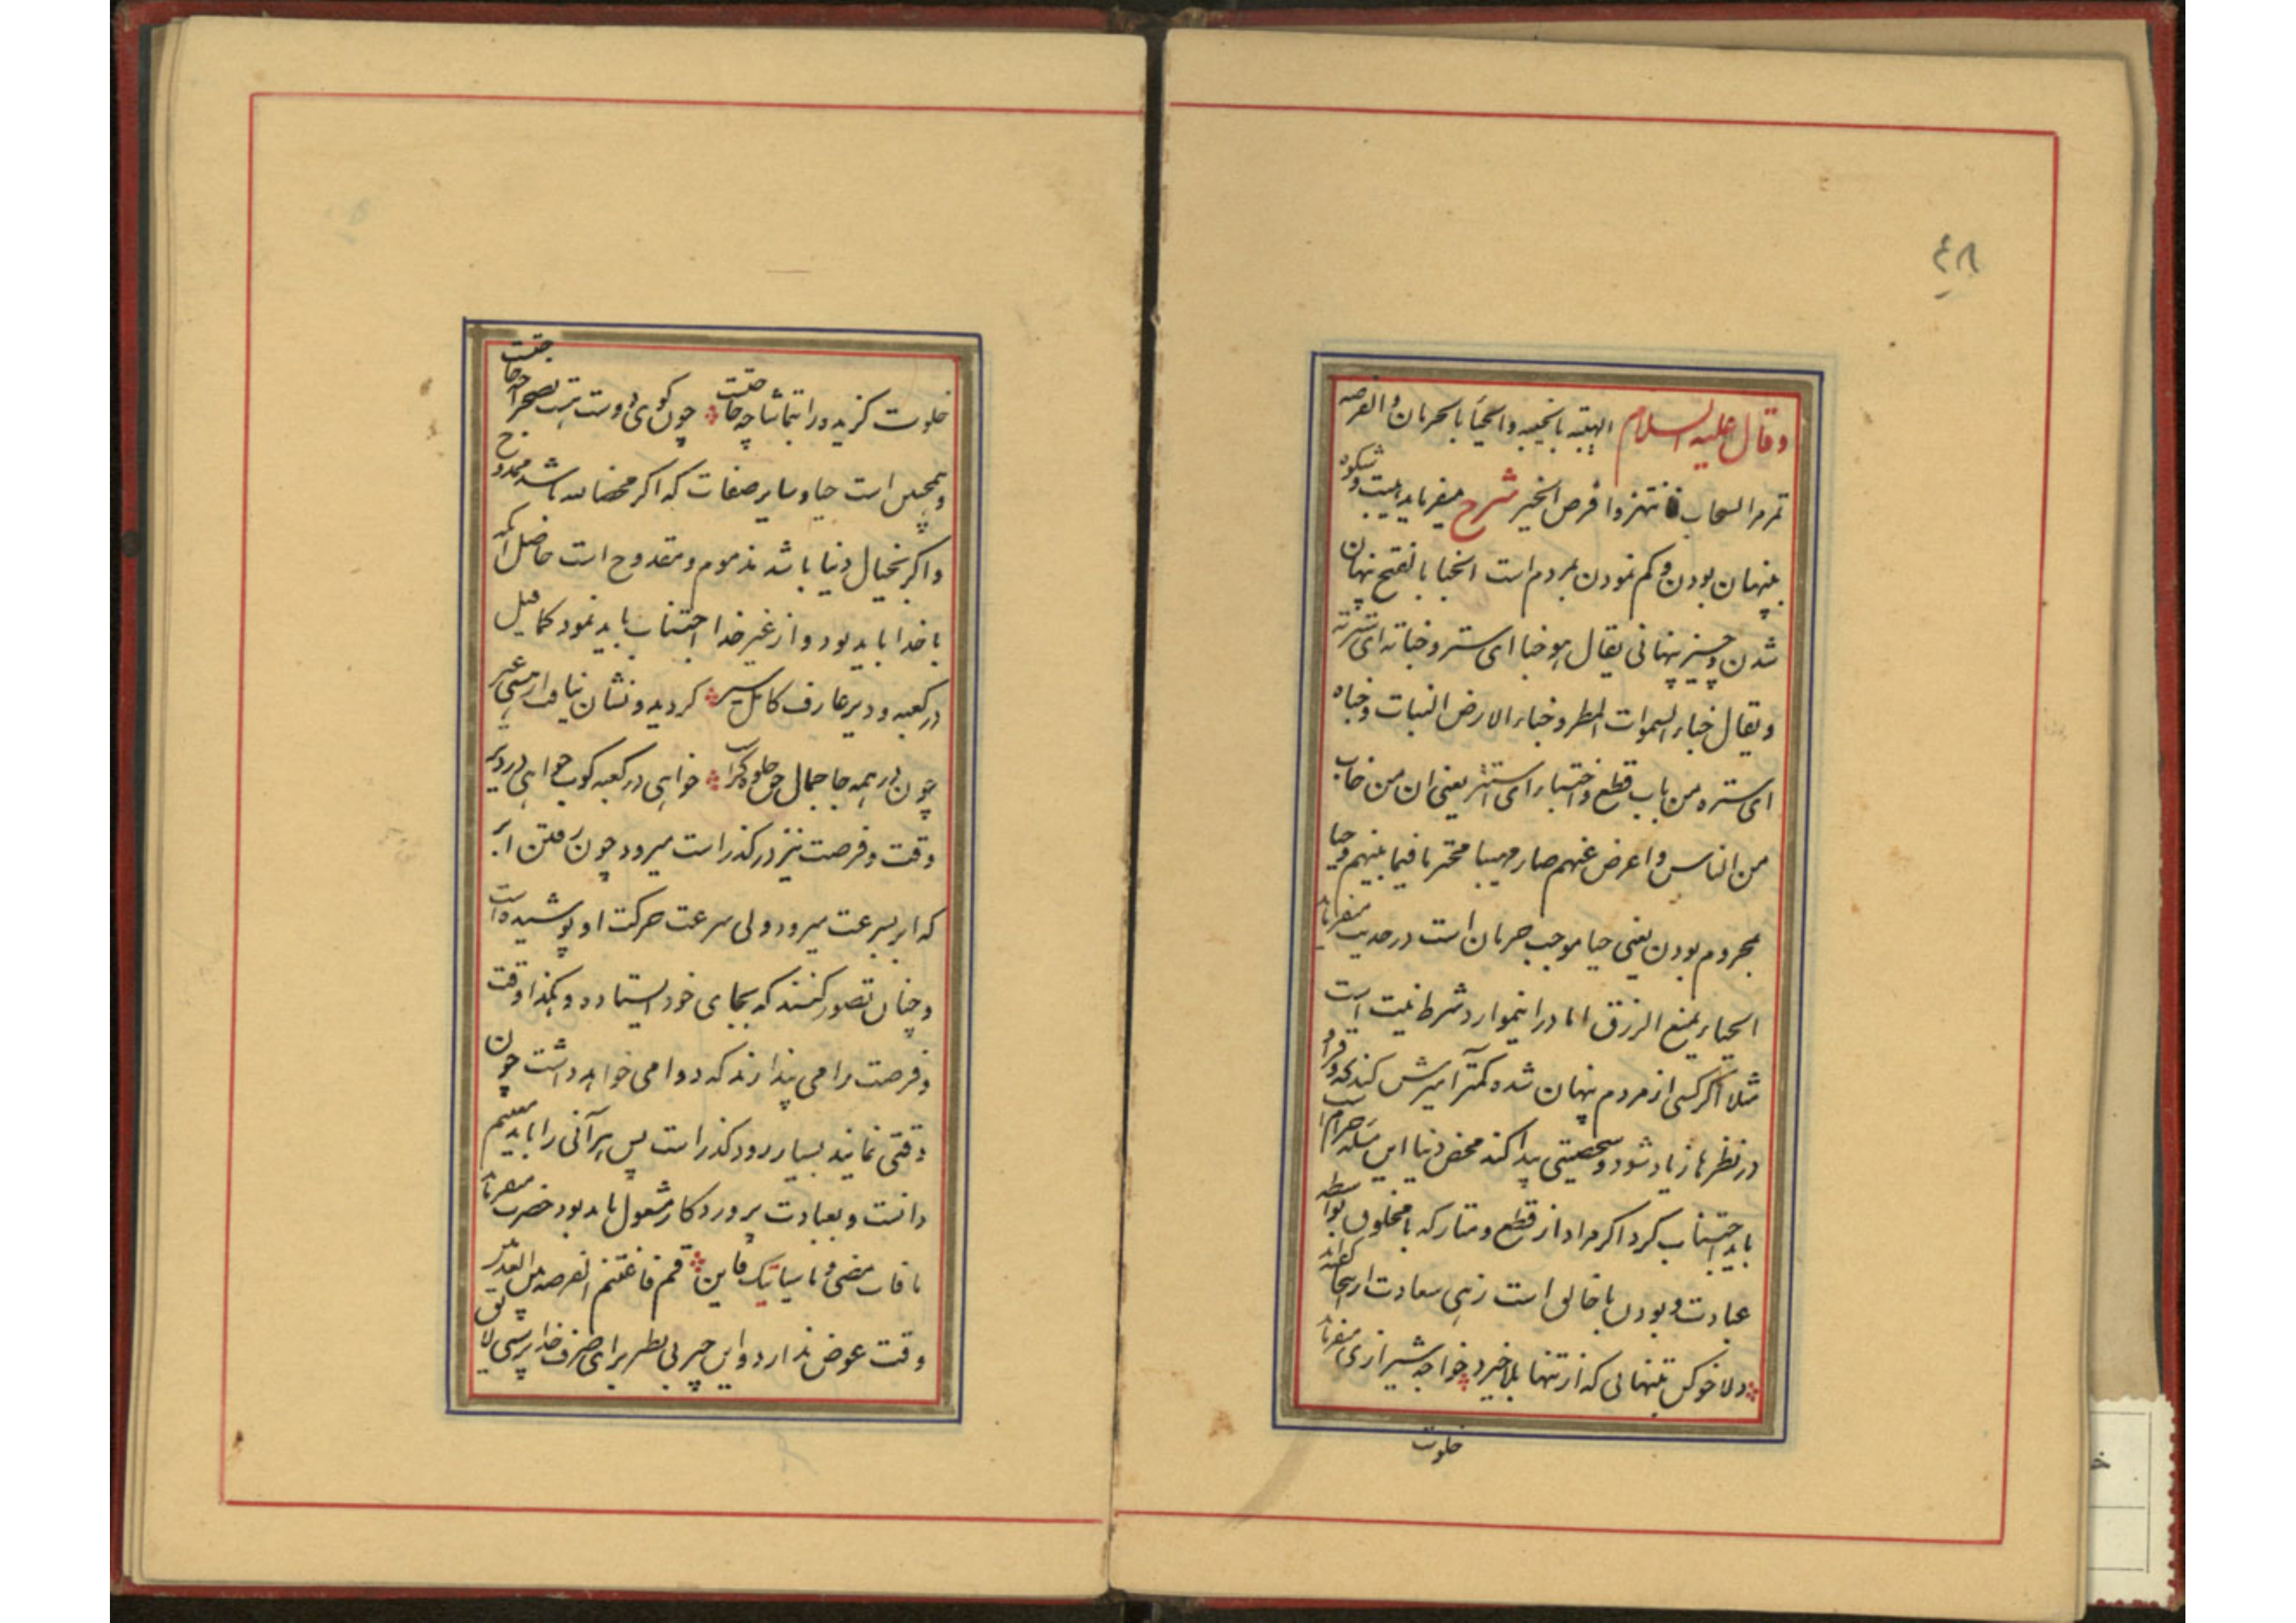 ٤٨
وقال علیه السلام الهیبة بالخیبه والحیا بالحرمان و الفرصه
تمر مر السحاب فانتهزوا فرص الخیر شرح میفرماید هیبت و شکوه
بپنهان بودن و کم نمودن بمردم است الخبا بالفتح پنهان
شدن و چیز پنهانی یقال هو خبا ای ستر و خباته ای سترته
و یقال خباء السموات المطر و خباء الارض النبات و خباه
ای ستره من باب قطع و اختباء ای استتر یعنی ان من خاب
من الناس و اعرض عنهم صار مهیبا محترما فیما بینهم و حیا
بمحروم بودن یعنی حیا موجب حرمان است در حدیث میفرماید
الحیاء یمنع الرزق اما در اینموارد شرط نیت است
مثلا اگر کسی از مردم پنهان شده کمتر آمیزش کند که وقر او
در نظرها زیاد شود و شخصیتی پیدا کند محض دنیا این مسئله حرام است
باید اجتناب کرد اگر مراد از قطع و متارکه با مخلوق بواسطه
عبادت و بودن با خالق است زهی سعادت از اینجا گفته‌اند
دلا خو کن بتنهائی که از تنها بلا خیزد خواجه شیرازی میفرماید
خلوت
خلوت گزیده را بتماشا چه حاجتست چون کوی دوست هست بصحرا چه حاجتست
و همچنین است حیا و سایر صفات که اگر محضا لله باشد ممدوح
و اگر بخیال دنیا باشد مذموم و مقدوح است حاصل آنکه
با خدا باید بود و از غیر خدا اجتناب باید نمود کما قیل
در کعبه و دیر عارف کامل سیر گردید و نشان نیافت از هستی غیر
چون در همه جا جمال حق جلوه گر است خواهی در کعبه کوب خواهی در دیر
وقت و فرصت نیز در گذر است میرود چون رفتن ابر
که ابر بسرعت میرود ولی سرعت حرکت او پوشیده است
و چنان تصور کنند که بجای خود ایستاده و هکذا وقت
و فرصت را می پندارند که دوامی خواهد داشت چون
وقتی نمانید بسیار زود گذر است پس هر آنی را باید مغتنم
دانست و بعبادت پروردگار مشغول باید بود حضرت میفرماید
ما فات مضی و ما سیاتیک فاین قم فاغتنم الفرصة بین العدمین
وقت عوض ندارد و این چیز بی نظیر برای صرف خدا پرستی لایق